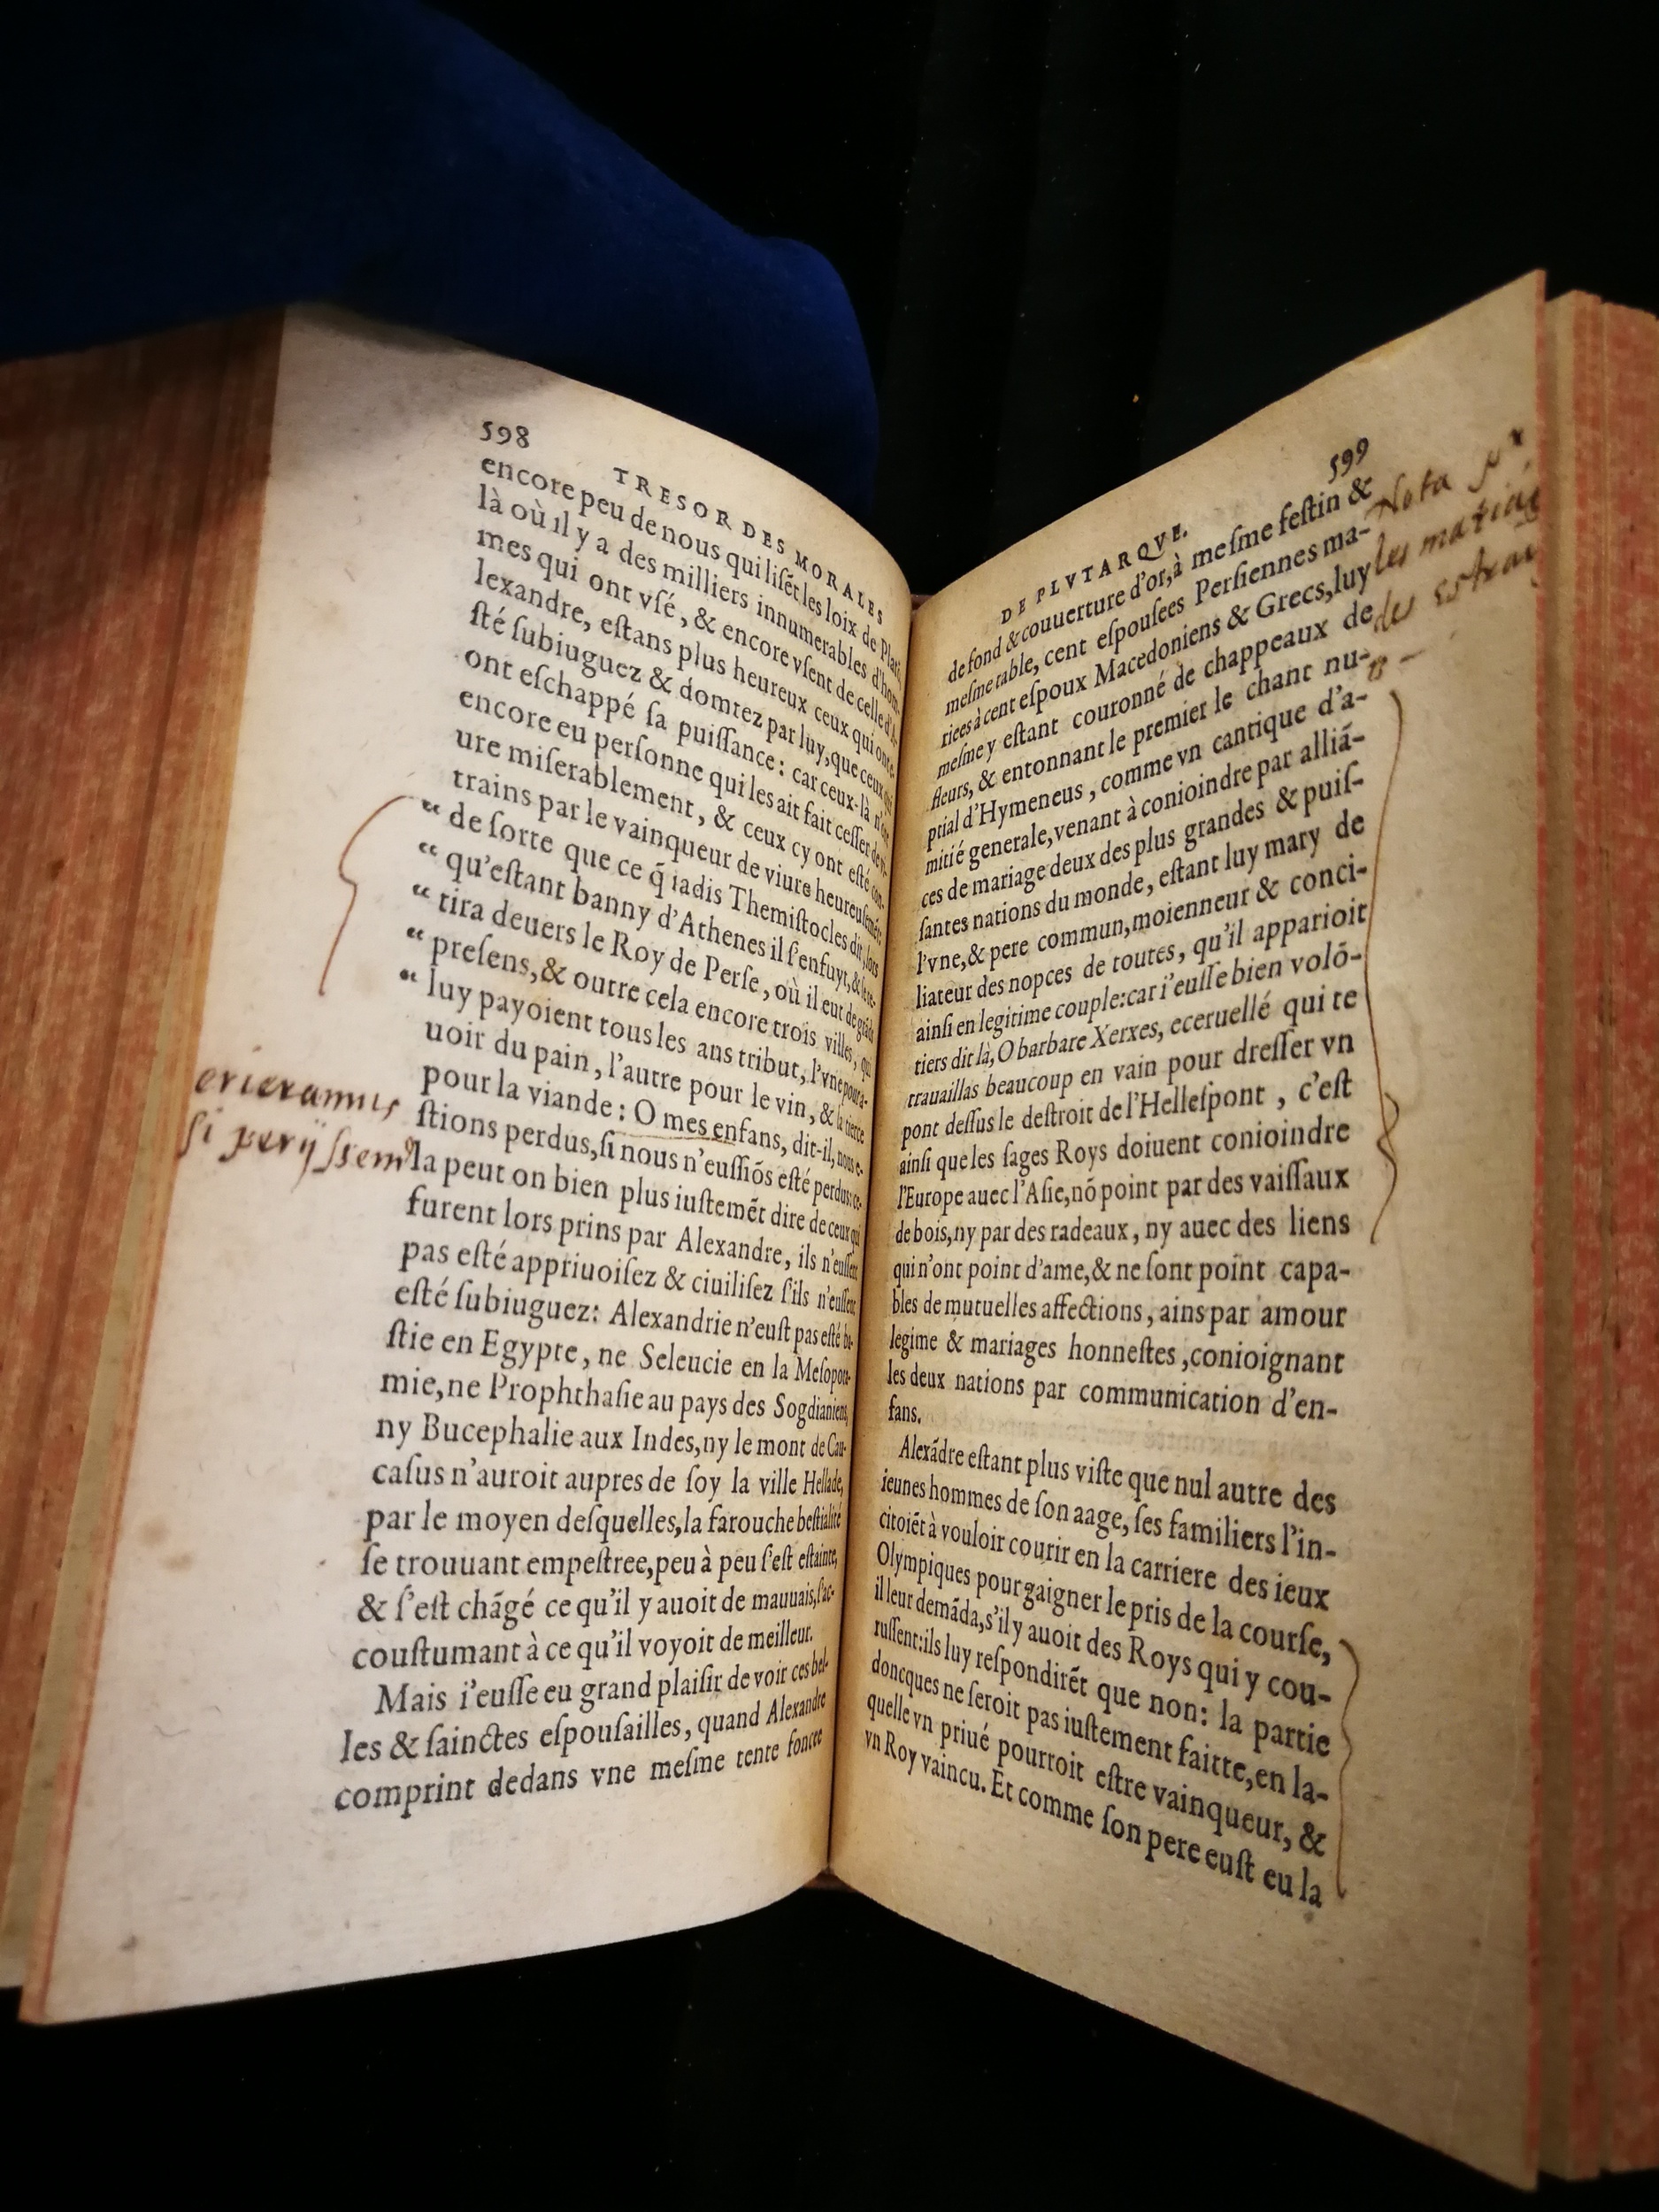 598
TRESOR DES MORALES
encore peu de nous qui lisẽt les loix de Plato,
là où il y a des milliers innumerables d'hom-
mes qui ont vſé, & encore vſent de celle d'A-
lexandre, eſtans plus heureux ceux qui ont e-
ſté ſubiuguez & domtez par luy, que ceux qui
ont eſchappé ſa puiſſance: car ceux-là n'ont
encore eu perſonne qui les ait fait ceſſer de vi-
ure miſerablement, & ceux cy ont eſté con-
trains par le vainqueur de viure heureuſemẽt:
“ de ſorte que ce q̃ iadis Themiſtocles dit, lors
“ qu'eſtant banny d'Athenes il ſ'enfuyt, & ſe re-
“ tira deuers le Roy de Perſe, où il eut de grãds
“ preſens, & outre cela encore trois villes, qui
“ luy payoient tous les ans tribut, l'vne pour a-
uoir du pain, l'autre pour le vin, & la tierce
pour la viande: O mes enfans, dit-il, nous e-
ſtions perdus, ſi nous n'euſſiõs eſté perdus: ce-
la peut on bien plus iuſtemẽt dire de ceux qui
furent lors prins par Alexandre, ils n'euſſent
pas eſté appriuoiſez & ciuiliſez ſ'ils n'euſſent
eſté ſubiuguez: Alexandrie n'euſt pas eſté ba-
ſtie en Egypte, ne Seleucie en la Meſopota-
mie, ne Prophthaſie au pays des Sogdianiens,
ny Bucephalie aux Indes, ny le mont de Cau-
caſus n'auroit aupres de ſoy la ville Hellade,
par le moyen deſquelles, la farouche beſtialité
ſe trouuant empeſtree, peu à peu ſ'eſt eſtainte,
& ſ'eſt chãgé ce qu'il y auoit de mauuais, ſ'ac-
couſtumant à ce qu'il voyoit de meilleur.
Mais i'euſſe eu grand plaiſir de voir ces bel-
les & ſainctes eſpouſailles, quand Alexandre
comprint dedans vne meſme tente foncee
erieramus
ſi perijſſem
DE PLVTARQVE.
599
de fond & couuerture d'or, à meſme feſtin &
meſme table, cent eſpouſees Perſiennes ma-
riees à cent eſpoux Macedoniens & Grecs, luy
meſme y eſtant couronné de chappeaux de
fleurs, & entonnant le premier le chant nu-
ptial d'Hymeneus, comme vn cantique d'a-
mitié generale, venant à conioindre par alliã-
ces de mariage deux des plus grandes & puiſ-
ſantes nations du monde, eſtant luy mary de
l'vne, & pere commun, moienneur & conci-
liateur des nopces de toutes, qu'il apparioit
ainſi en legitime couple: car i'euſſe bien volõ-
tiers dit là, O barbare Xerxes, eceruellé qui te
trauaillas beaucoup en vain pour dreſſer vn
pont deſſus le deſtroit de l'Helleſpont, c'eſt
ainſi que les ſages Roys doiuent conioindre
l'Europe auec l'Aſie, nõ point par des vaiſſaux
de bois, ny par des radeaux, ny auec des liens
qui n'ont point d'ame, & ne ſont point capa-
bles de mutuelles affections, ains par amour
legime & mariages honneſtes, conioignant
les deux nations par communication d'en-
fans.
Alexãdre eſtant plus viſte que nul autre des
ieunes hommes de ſon aage, ſes familiers l'in-
citoiẽt à vouloir courir en la carriere des ieux
Olympiques pour gaigner le pris de la courſe,
il leur demãda, s'il y auoit des Roys qui y cou-
ruſſent: ils luy reſpondirẽt que non: la partie
doncques ne ſeroit pas iuſtement faitte, en la-
quelle vn priué pourroit eſtre vainqueur, &
vn Roy vaincu. Et comme ſon pere euſt eu la
Nota
les mariag
des estran